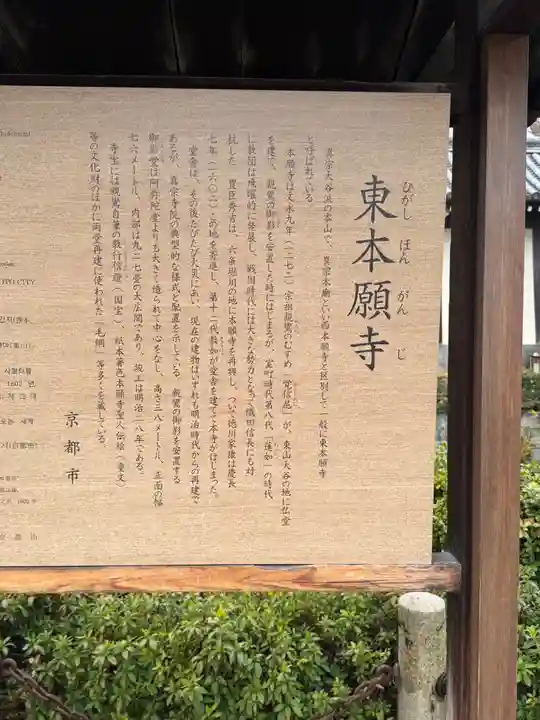 東本願寺
ひがし ほん がん じ
真宗大谷派の本山で、真宗本廟といい西本願寺と区別して一般に東本願寺
と呼ばれている。
本願寺は文永九年（一二七二）宗祖親鸞のむすめ「覚信尼」が、東山大谷の地に仏堂
を建て、親鸞の御影を安置した時にはじまるが、室町時代第八代「蓮如」の時代
に教団は飛躍的に発展し、戦国時代には大きな勢力となって織田信長にも対
抗した。豊臣秀吉は、六条堀川の地に本願寺を再興し、ついで徳川家康は慶長
七年（一六〇二）この地を寄進し、第十二代教如が堂舎を建てて本寺がはじまった。
堂舎は、その後たびたび火災にあい、現在の建物はいずれも明治時代からの再建で
あるが、真宗寺院の典型的な様式と配置を示している。親鸞の御影を安置する
御影堂は阿弥陀堂よりも大きく造られて中心をなし、高さ三八メートル、正面の幅
七六メートル、内部は九二七畳の大広間であり、竣工は明治二八年である。
寺宝には親鸞自筆の教行信證（国宝）、紙本著色本願寺聖人伝絵（重文）
等の文化財のほかに両堂再建に使われた「毛綱」等多くを蔵している。
京都市